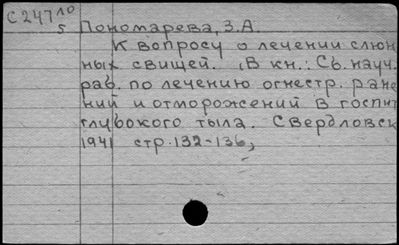 С247 10/5 Пономарева, З.А.
К вопросу о лечении слюн
ных свищей. , В кн.: Сб. науч.
раб. по лечению огнестр. ране
ний и отморожений в госпит
глубокого тыла. Свердловск
1941 стр. 132-136,